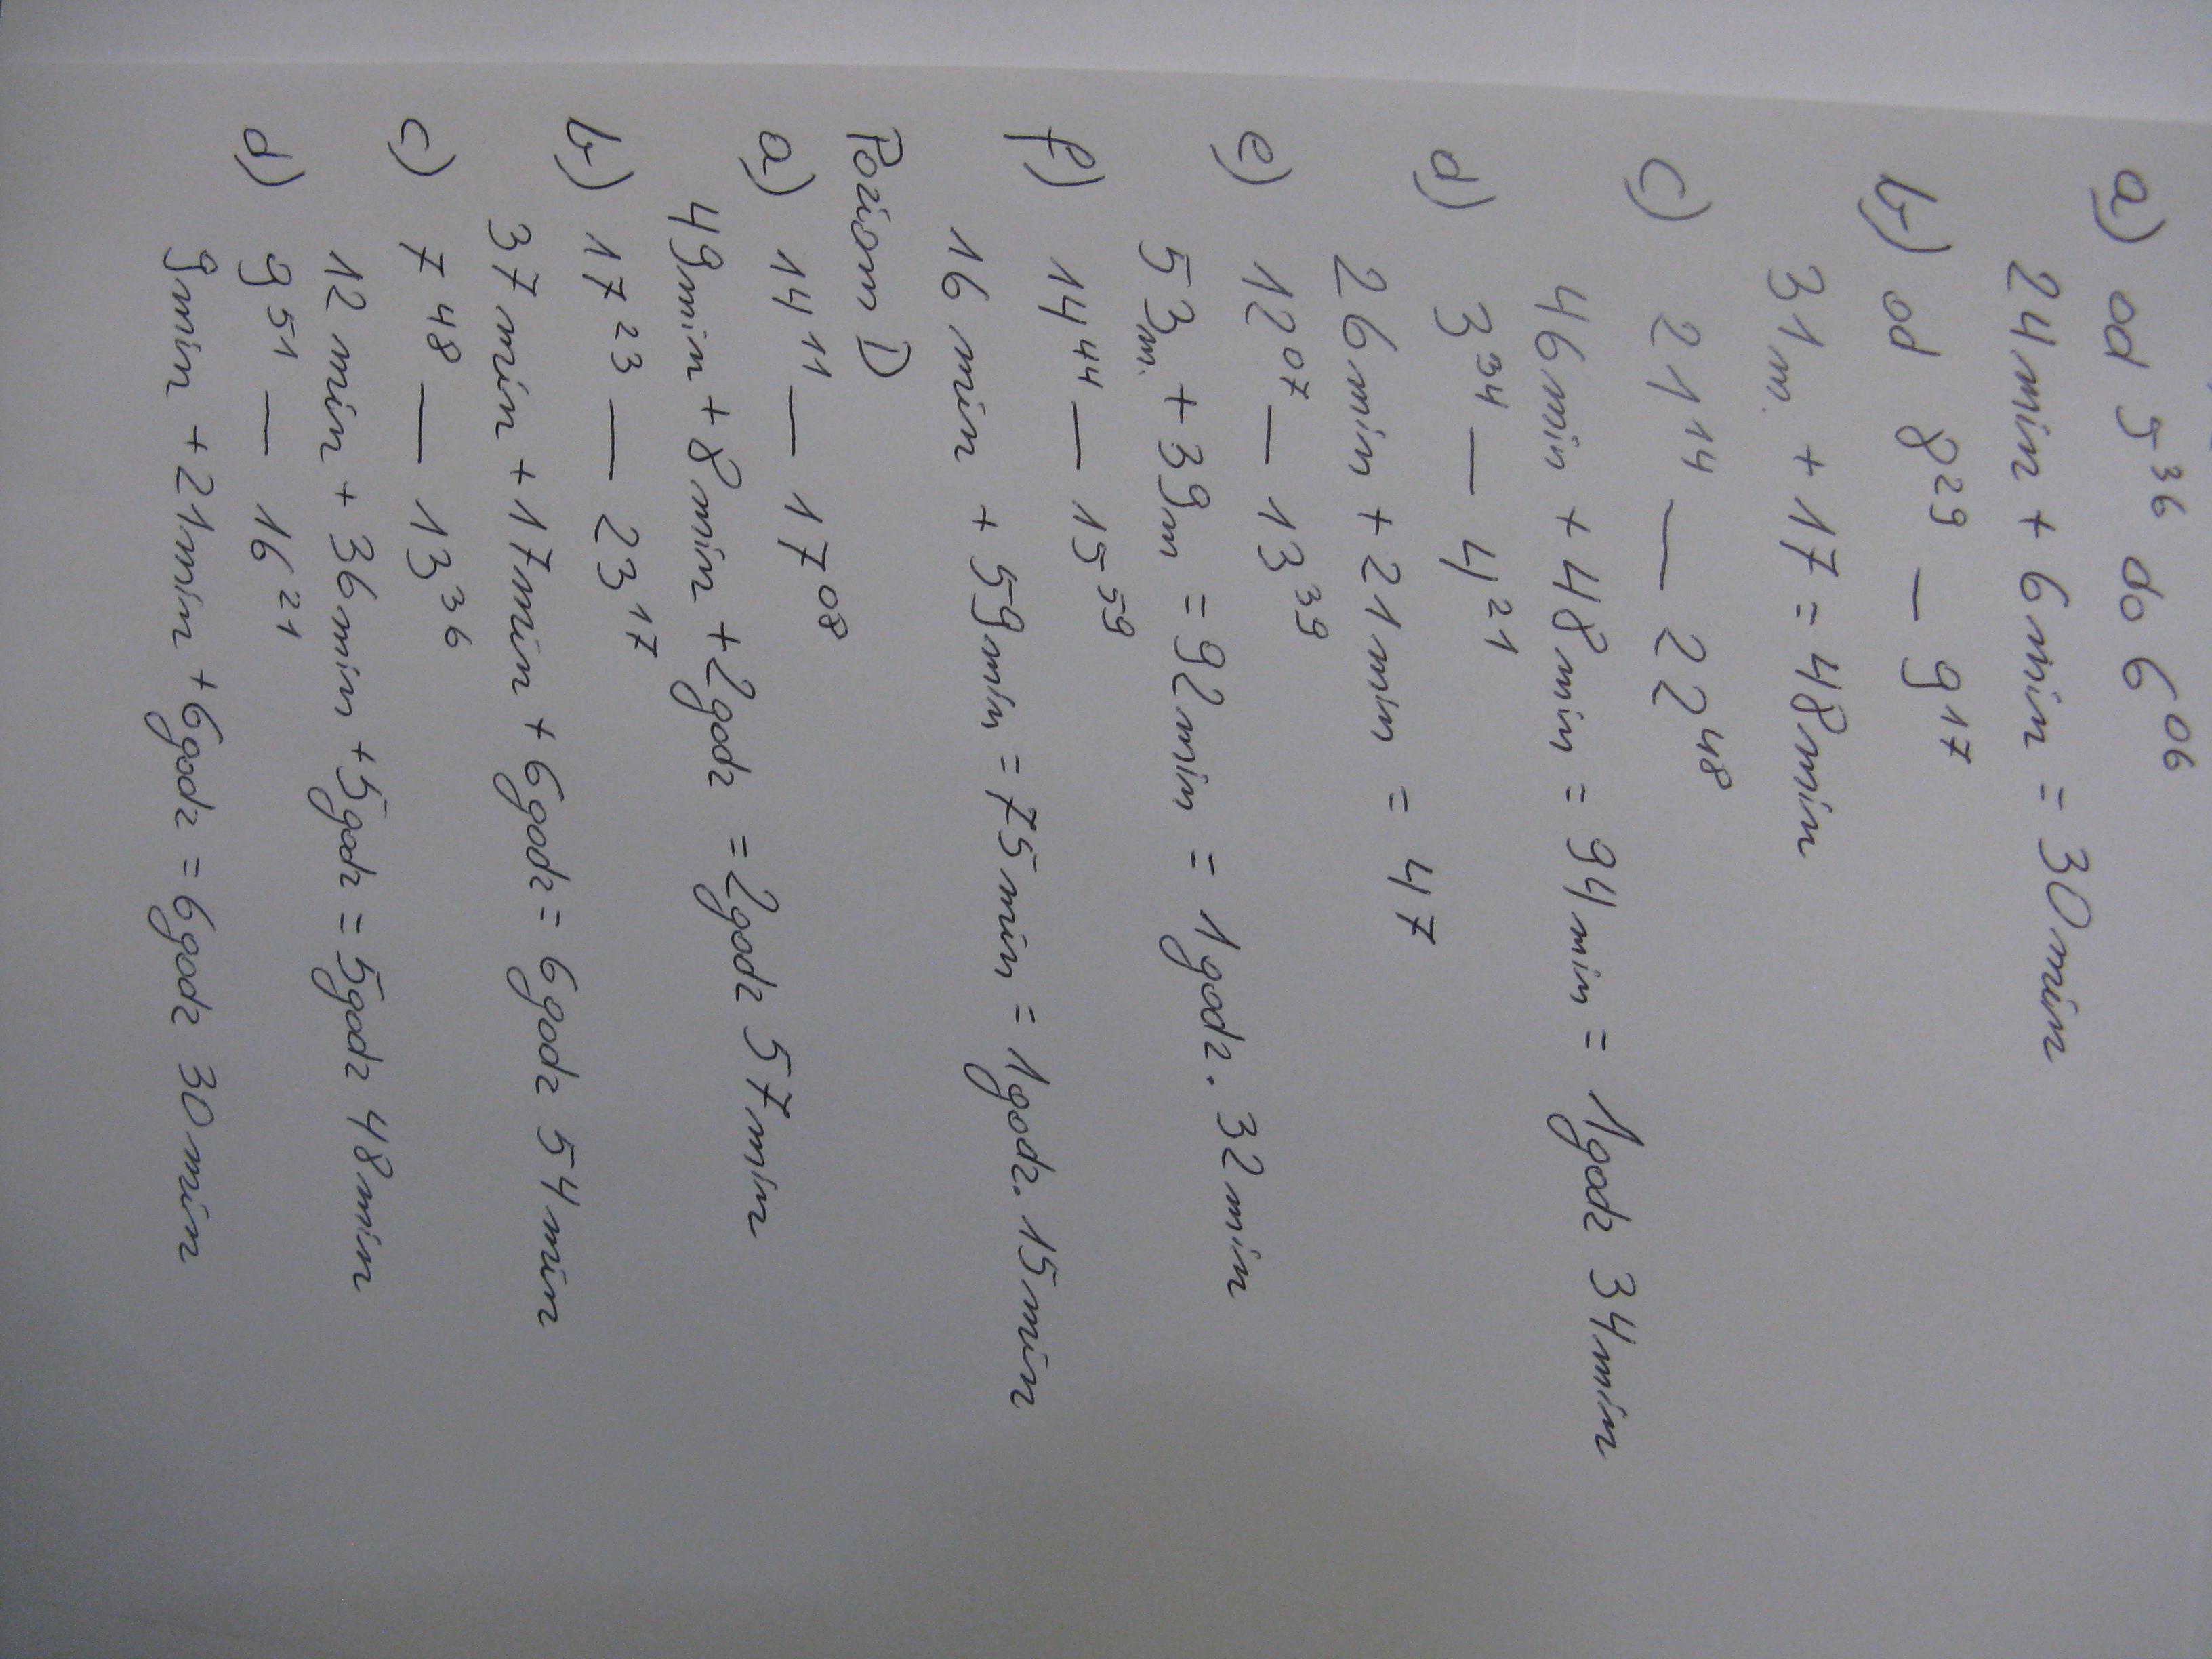 a) od 5³⁶ do 6⁰⁶
24min + 6min = 30min
b) od 8²⁹ – 9¹⁷
31m. + 17 = 48min
c) 21¹⁴ — 22⁴⁸
46min + 48min = 94min = 1godz 34min
d) 3³⁴ — 4²¹
26min + 21min = 47
e) 12⁰⁷ — 13³⁹
53m. + 39m = 92min = 1godz. 32min
f) 14⁴⁴ — 15⁵⁹
16 min + 59min = 75min = 1godz. 15min
Poziom D
a) 14¹¹ — 17⁰⁸
49min + 8min + 2godz = 2godz 57min
b) 17²³ — 23¹⁷
37min + 17min + 6godz = 6godz 54min
c) 7⁴⁸ — 13³⁶
12 min + 36min + 5godz = 5godz 48min
d) 9⁵¹ — 16²¹
9min + 21min + 6godz = 6godz 30min